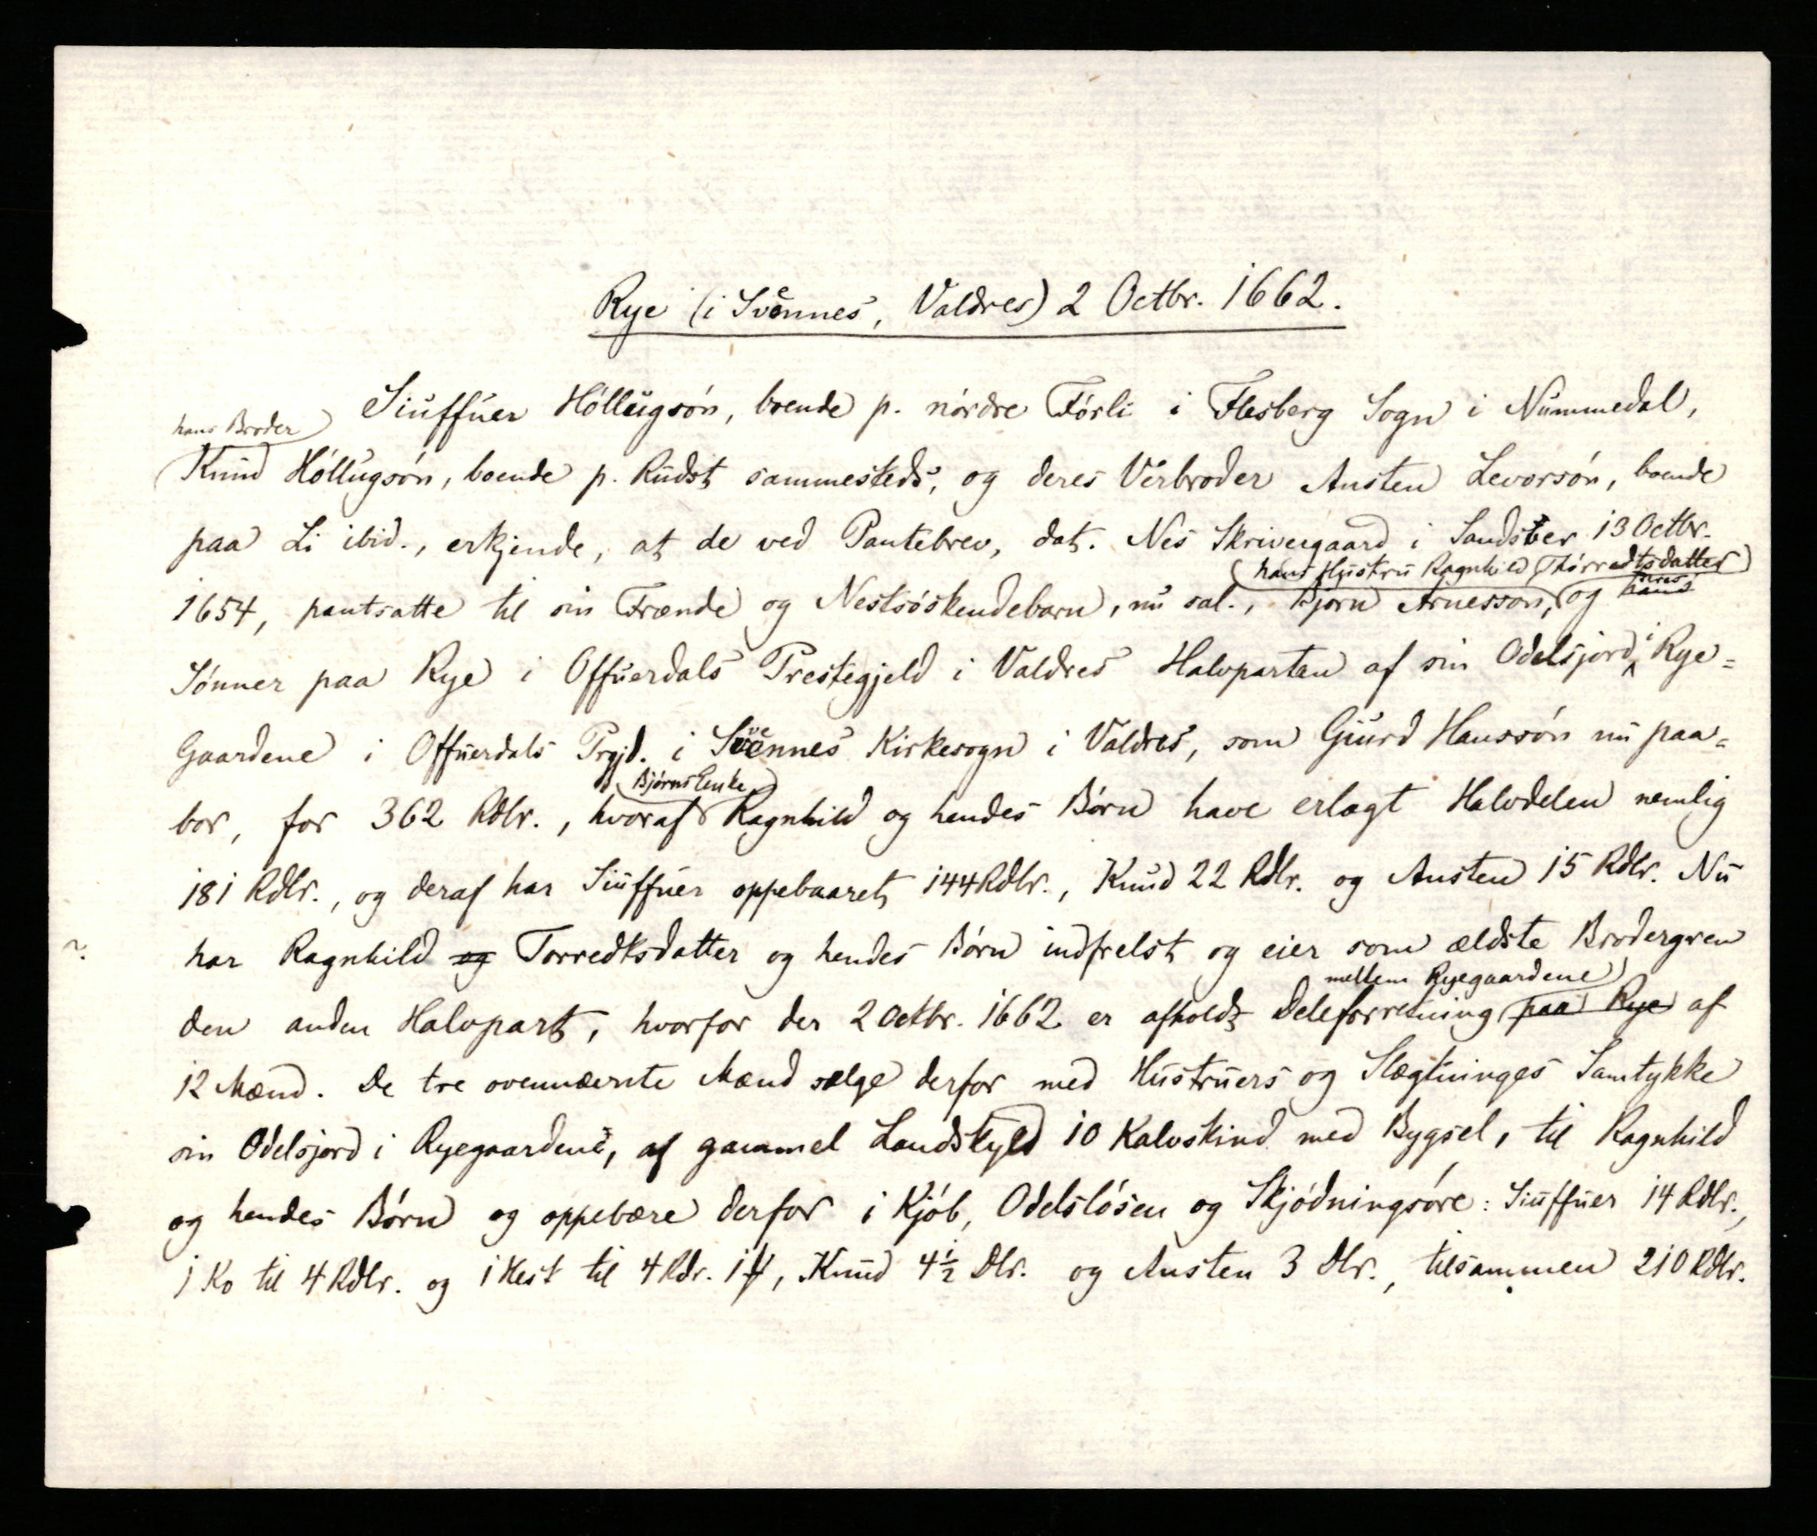 Rye (i Svennes, Valdres) 2 Octbr. 1662.
Siuffuer Höllugsön, boende p. nórdre Fórli i Flesberg Sogn i Nummedal,
hans Broder
Knud Höllugsón, boende p. Rudst sammesteds, og deres Verbroder Austen Levorsón, boende
paa Li ibid., erkjende, at de ved Pantebrev, dat. Nes Skrivergaard i Sandsver 13 Octbr.
hans Hustru Ragnhild Thórredtsdatter
1654, pantsatte til sin Frænde og Nestsóskendebarn, nu sal., Bjorn Arnesson, og hans
Sónner paa Rye i Offuerdals Prestegjeld i Valdres Halvparten af sin Odelsjord i Rye=
Gaardene i Offuerdals Prgjd. i Svennes Kirkesogn i Valdres, som Giurd Hanssón nu paa=
Bjórns Enke
bor, for 362 Rdlr., hvoraf Ragnhild og hendes Bórn have erlagt Halvdelen nemlig
181 Rdlr., og deraf har Siuffuer oppebaaret 144 Rdlr., Knud 22 Rdlr. og Austen 15 Rdlr. Nu
har Ragnhild og Torredtsdatter og hendes Bórn indfrelst og eier som ældste Brodergren
mellem Ryegaardene
den anden Halvpart, hvorfor der 2 Octbr. 1662 er afholdt Deleforretning paa Rye af
12 Mænd. De tre ovennævnte Mænd sælge derfor med Hustruers og Slægtninges Samtykke
sin Odelsjord i Ryegaardene, af gammel Landskyld 10 Kalvskind med Bygsel, til Ragnhild
og hendes Bórn og oppebære derfor i Kjób, Odelslósen og Skjódningsóre: Siuffuer 14 Rdlr.,
1 Ko til 4 Rdlr. og 1 Hest til 4 Rdr. 1 , Knud 4½ Dlr. og Austen 3 Dlr., tilsammen 210 Rdlr.